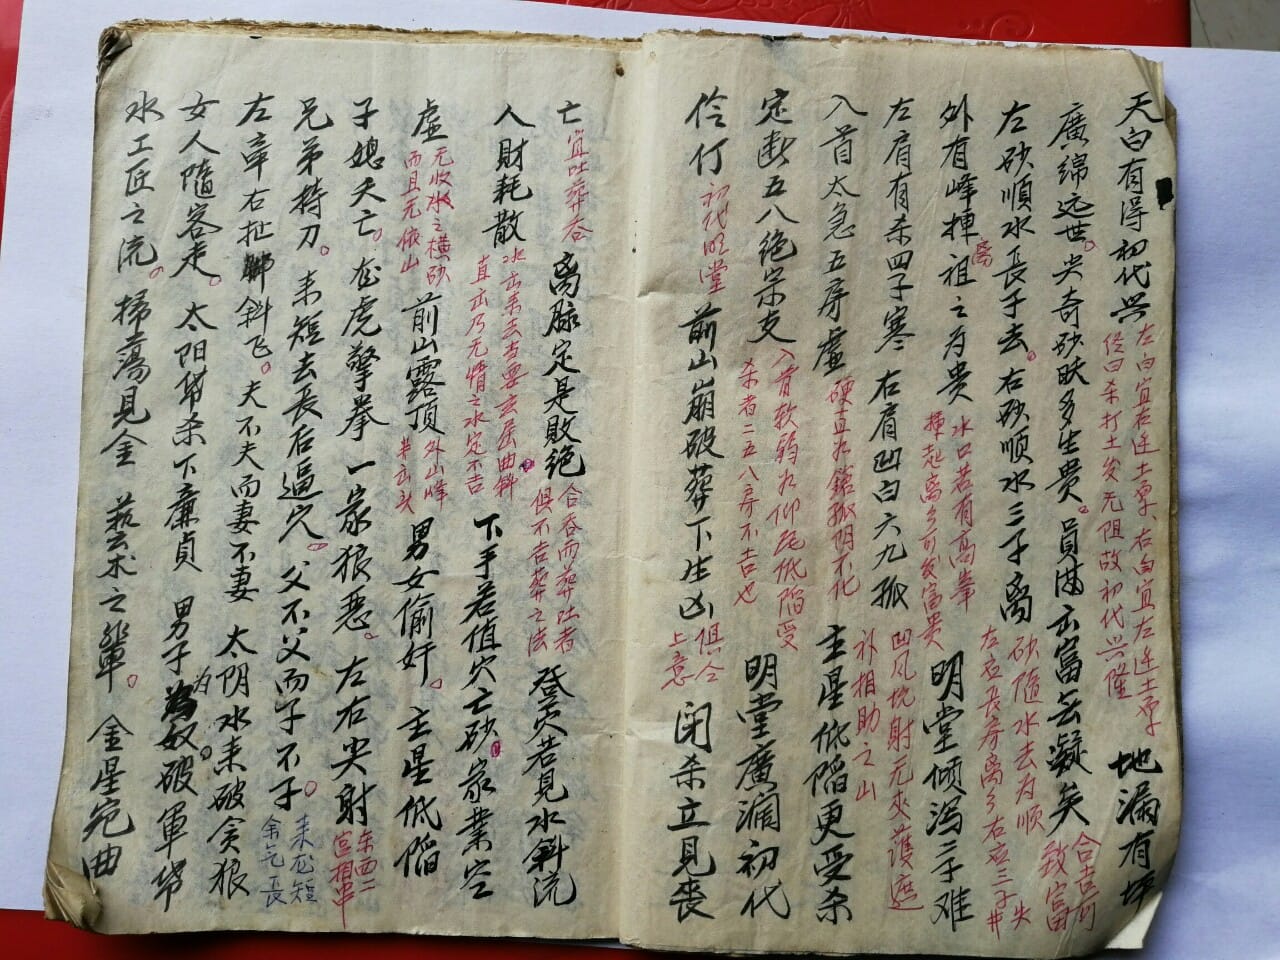 天白有得初代兴
左白宜右迁土牵右白宜左迁土牵
侵曰杀打土发无阻故初代兴隆
地漏有坪
廣绵远世。尖奇砂昳多生贵。員满云富去凝矣
合吉何
致富
左砂順水長子去。右砂順水三子离
砂隨水去为順
左应長房离乡右应三子
外有峰挿祖之为贵
离
水口若有高峯
挿起离乡可发富贵
明堂倾泻二子难
左肩有杀四子寒
右肩凹白六九孤
凹风坑射无夾護遮
补相助之山
入首太急五房虛
硬直如鎗孤阴不化
主星低陷更受杀
定断五八绝宗支
入首软弱如仰瓦低陷受
杀者二五八房不吉也
明堂廣濶初代
伶仃
初代明堂
前山崩破葬下生凶
俱仝
上意
闭杀立見丧
亡
宜吐葬吞
离脉定是敗绝
合吞而葬吐者
俱不吉葬之法
登穴若見水斜流
人財耗散
水去来去者要玄屈曲斜
直去乃无情之水定不吉
下手若值穴亡砂。家業空
虛
无收水之横砂
而且无依山
前山露頂
外山峰
井云头
男女偷奸。主星低陷
子媳夭亡。龙虎擎拳一家狼恶。左右尖射
东西二
宫相串
兄弟持刀。来短去長后逼穴。父不父而子不子。
来龙短
余气長
左牵右扯斜飞。夫不夫而妻不妻太阴水来破贪狼
女人隨客走。太阳帶杀下廉貞男子为奴。破軍帶
水工匠之流。掃蕩見金藝术之輩。金星宛曲